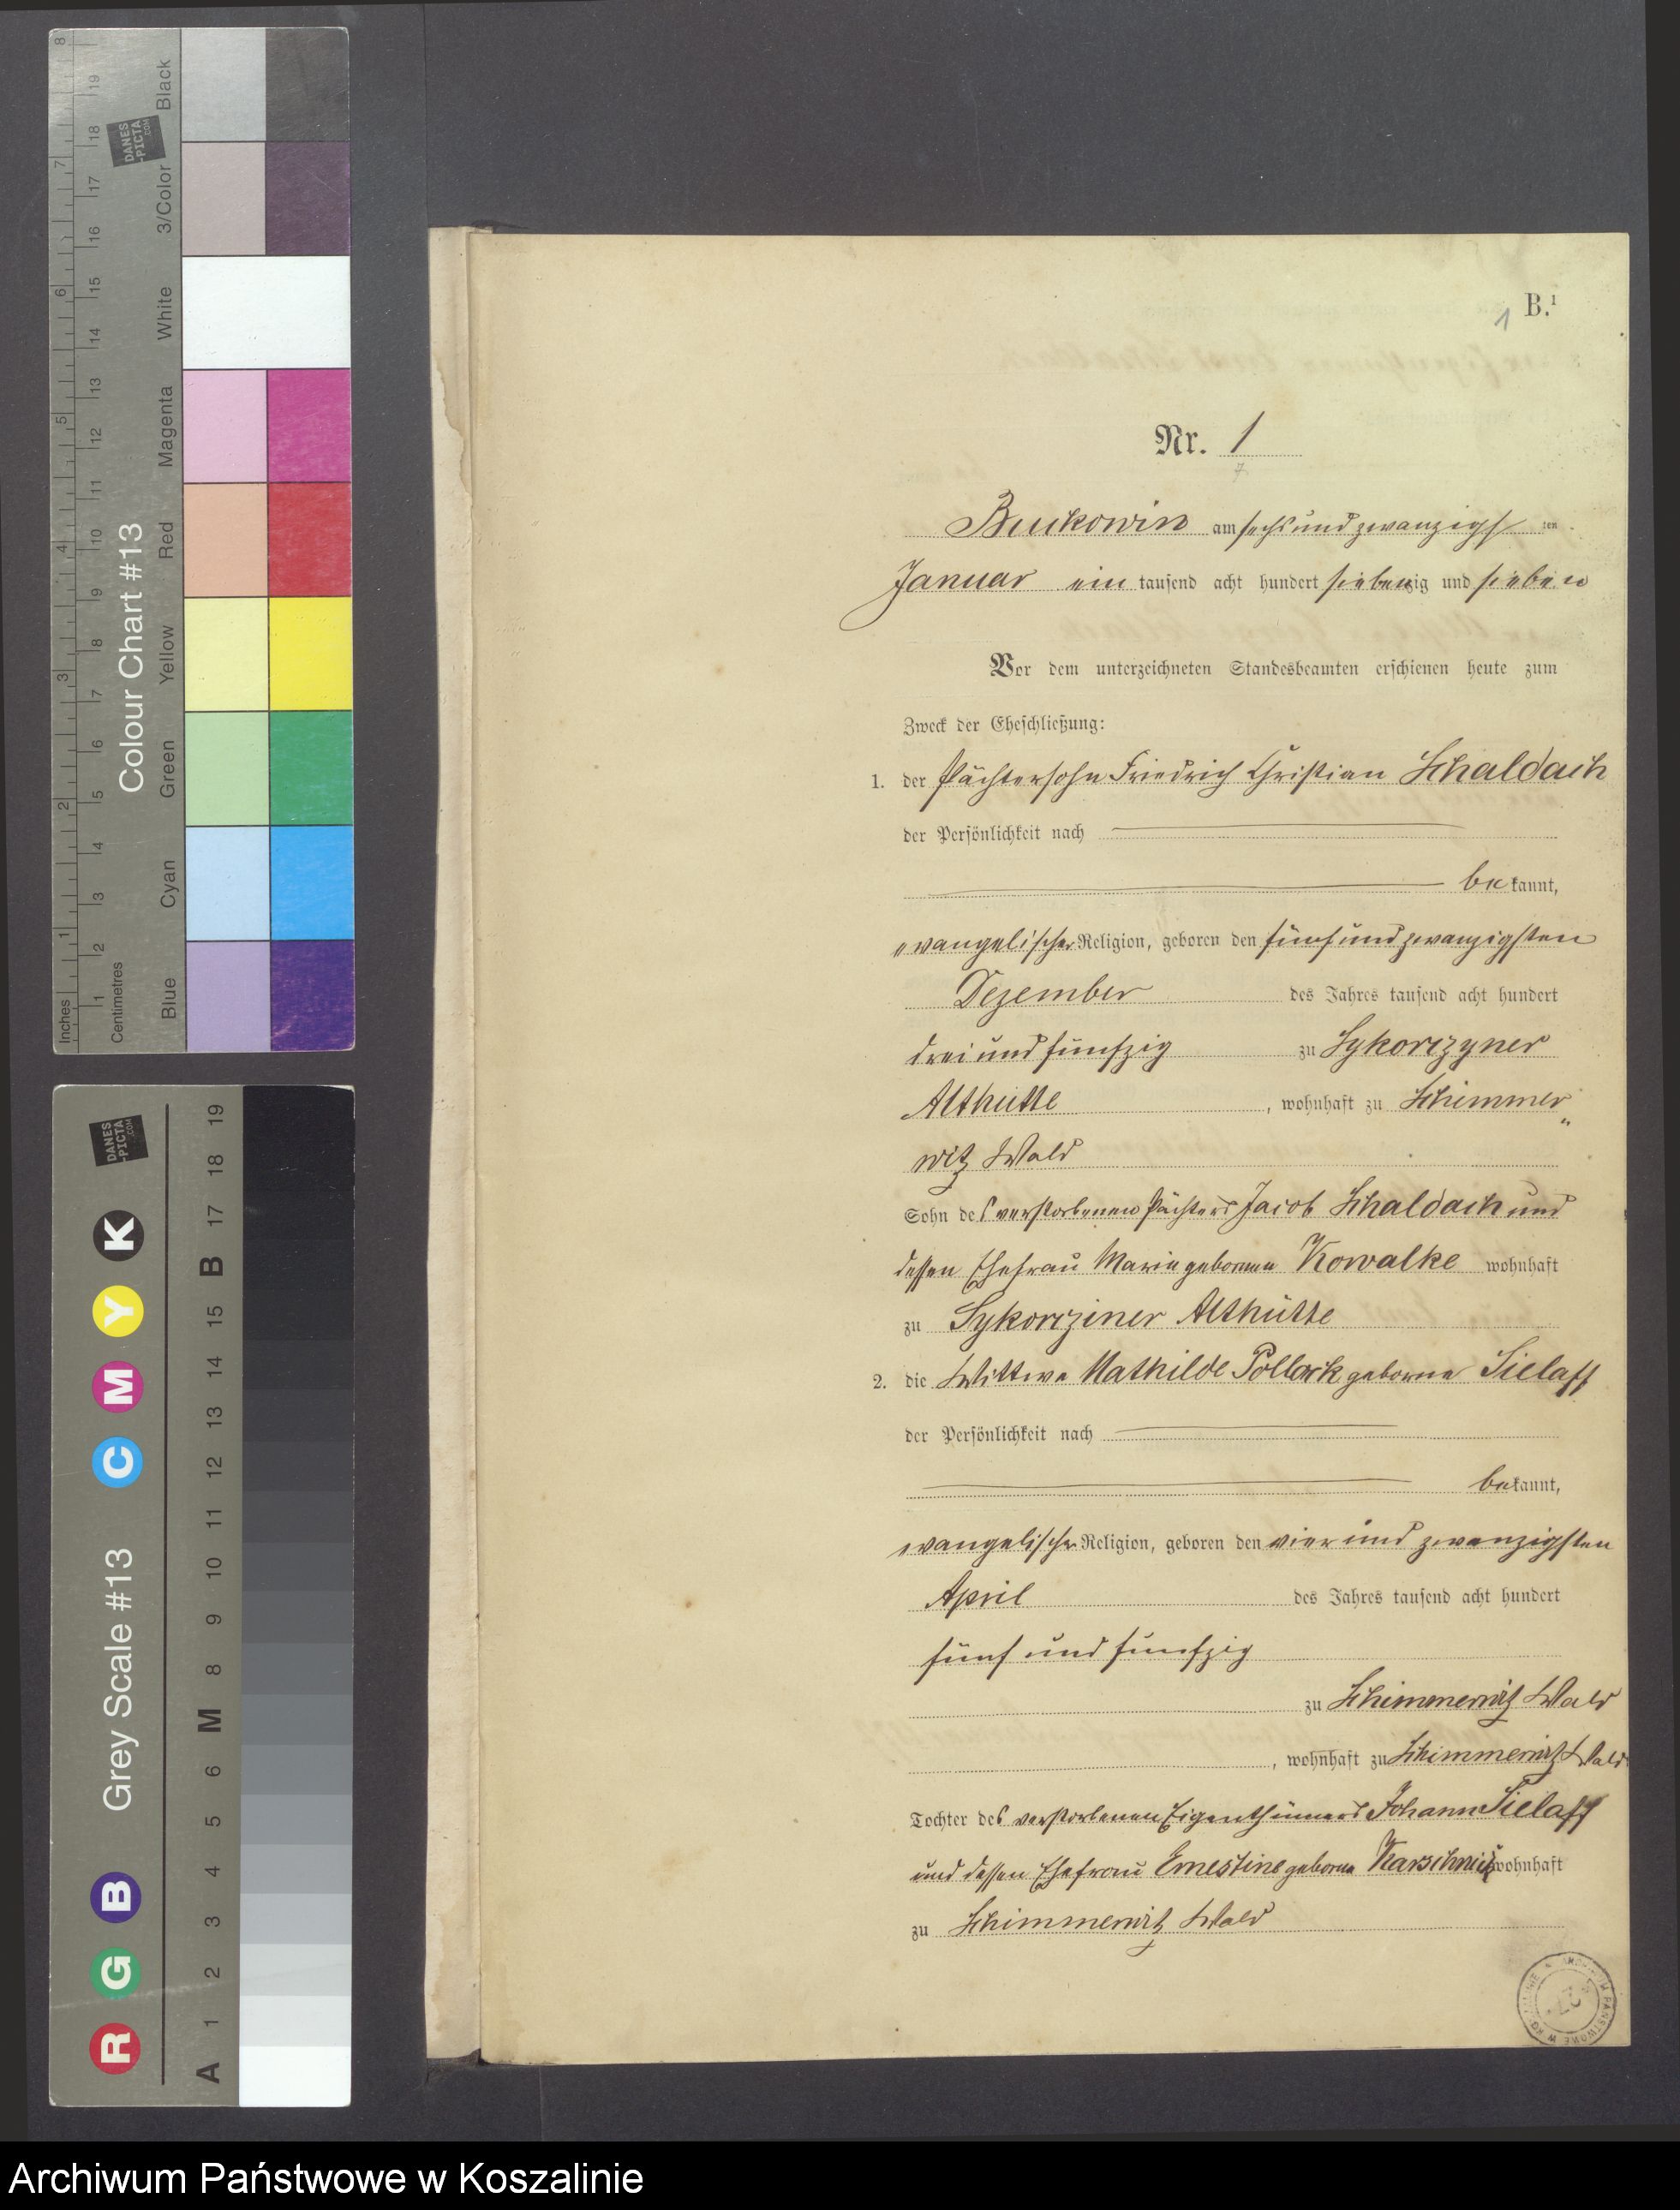 8
19
Black
DANES
-PICTA
.COM
18
7
17
3/Color
16
6
15
White
14
13
Magenta
5
12
11
Red
4
10
Colour Chart #13
9
Yellow
8
3
7
6
Green
2
5
4
Cyan
3
1
2
Blue
Inches
1
Centimetres
DANES
-PICTA
.COM
R G B C M Y K
Grey Scale #13
A 1 2 3 4 5 6 M 8 9 10 11 12 13 14 15 B 17 18 19
B.¹
1
Nr. 1
Buckowin am sechs und zwanzigsten
Januar ein tausend acht hundert siebenzig und sieben
Vor dem unterzeichneten Standesbeamten erschienen heute zum
Zweck der Eheschließung:
1. der Pächtersohn Friedrich Christian Schaldach
der Persönlichkeit nach
bekannt,
evangelischer Religion, geboren den fünf und zwanzigsten
Dezember des Jahres tausend acht hundert
drei und fünfzig zu Sykorczyner
Althütte, wohnhaft zu Schimmer„
witz Wald
Sohn des verstorbenen Pächters Jacob Schaldach und
dessen Ehefrau Marie geborenen Kowalke wohnhaft
zu Sykorcziner Althütte
2. die Wittwe Mathilde Pollack geborne Sielaff
der Persönlichkeit nach
bekannt,
evangelischer Religion, geboren den vier und zwanzigsten
April des Jahres tausend acht hundert
fünf und fünfzig
zu Schimmerwitz Wald
, wohnhaft zu Schimmerwitz Wald
Tochter des verstorbenen Eigenthümers Johann Sielaff
und dessen Ehefrau Ernestine geborne Karschnick wohnhaft
zu Schimmerwitz Wald
Archiwum Państwowe w Koszalinie